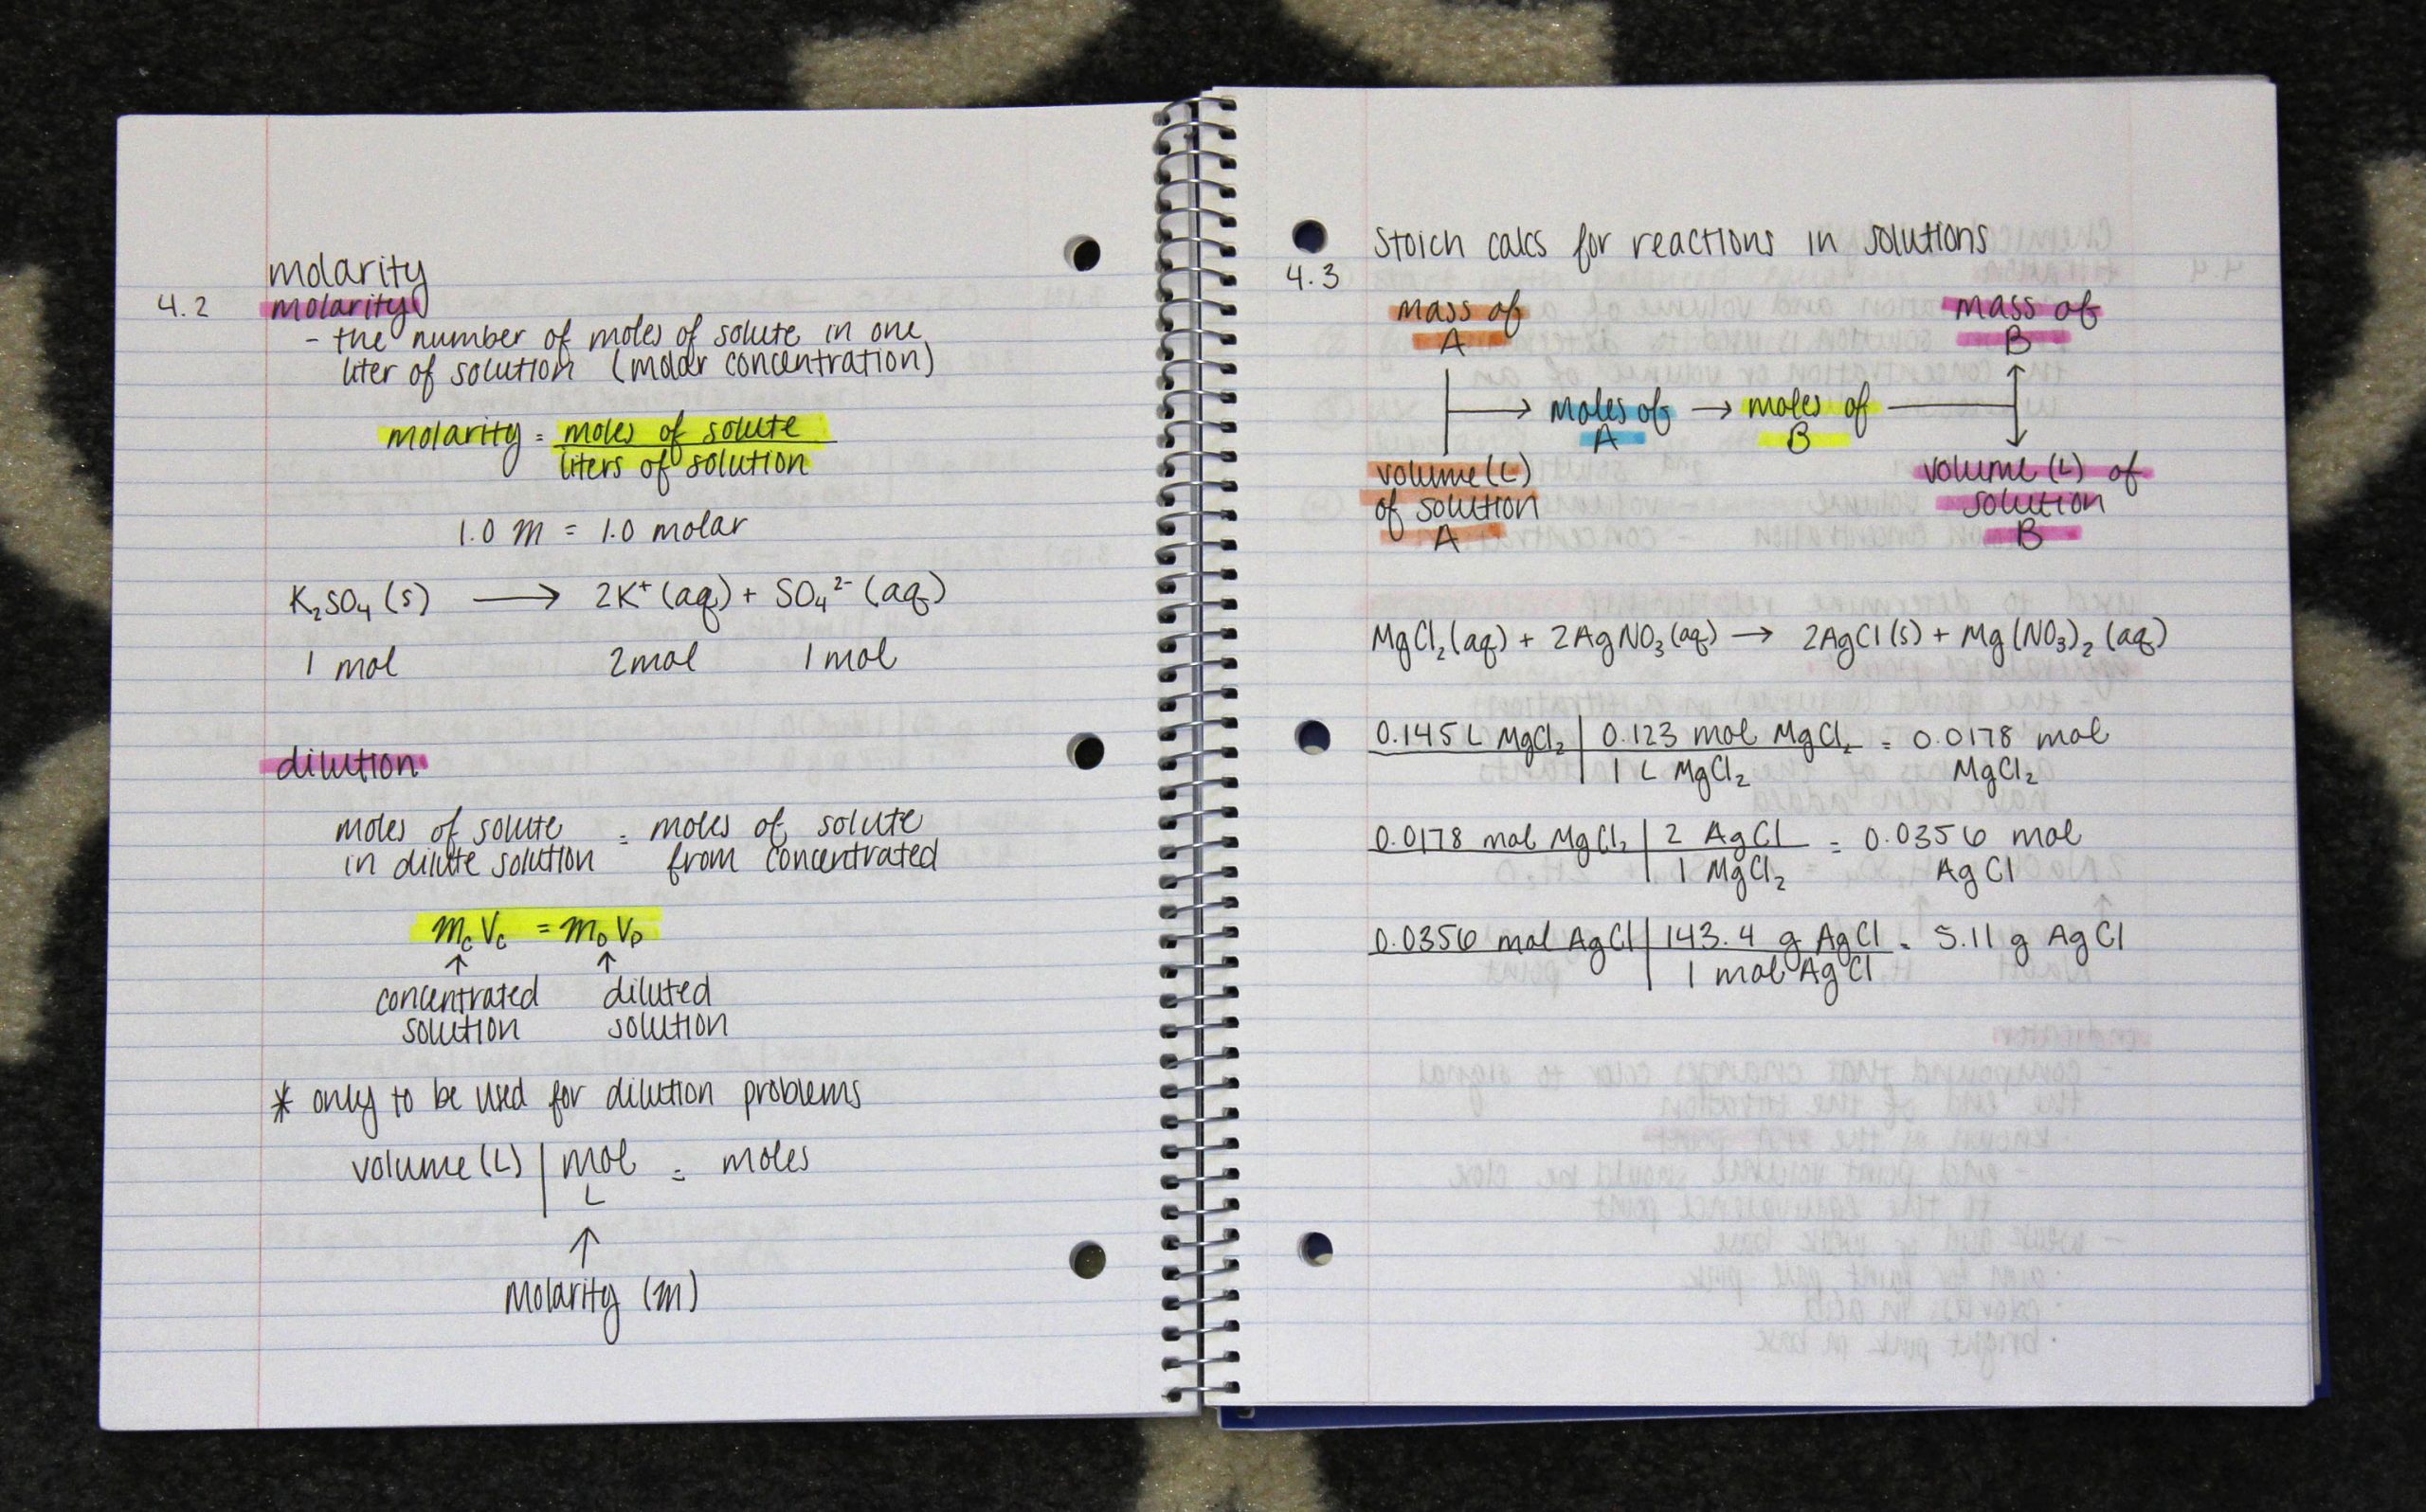 molarity
4.2 molarity
- the number of moles of solute in one
liter of solution (molar concentration)
molarity = moles of solute
liters of solution
1.0 M = 1.0 molar
K₂SO₄ (s) ⟶ 2K⁺ (aq) + SO₄²⁻ (aq)
1 mol 2mol 1 mol
dilution
moles of solute = moles of solute
in dilute solution from concentrated
McVc = MDVD
↑ ↑
concentrated diluted
solution solution
* only to be used for dilution problems
volume (L) | mol = moles
L
↑
Molarity (M)
Stoich calcs for reactions in solutions
4.3
mass of mass of
A B
moles of → moles of
A B
volume (L) volume (L) of
of solution solution
A B
MgCl₂ (aq) + 2AgNO₃ (aq) → 2AgCl (s) + Mg(NO₃)₂ (aq)
0.145 L MgCl₂ | 0.123 mol MgCl₂ = 0.0178 mol
1 L MgCl₂ MgCl₂
0.0178 mol MgCl₂ | 2 AgCl = 0.0356 mol
1 MgCl₂ AgCl
0.0356 mol AgCl | 143.4 g AgCl = 5.11 g AgCl
1 mol AgCl